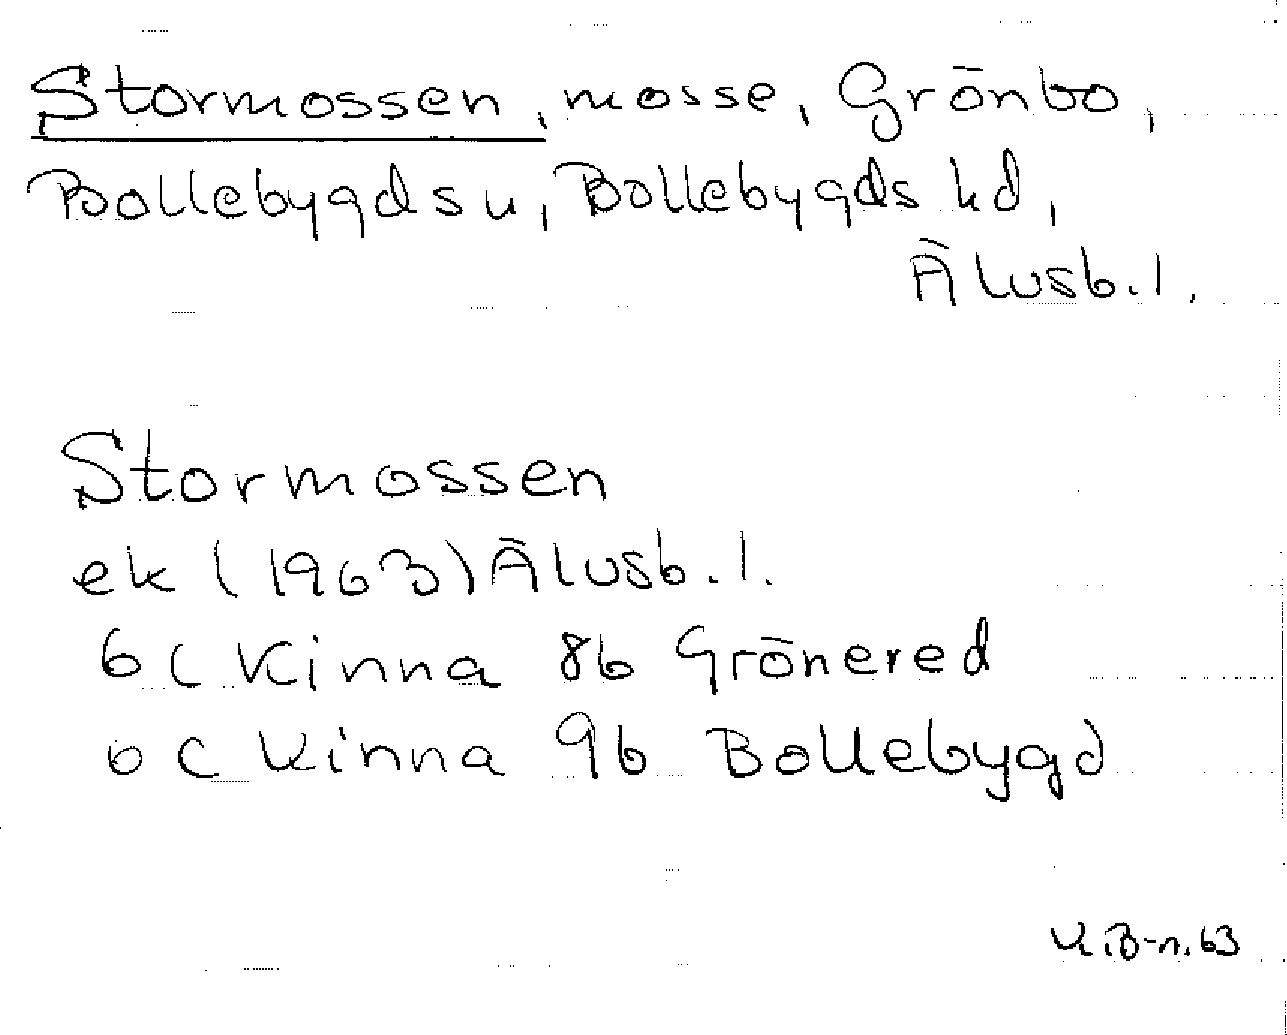 Stormossen, mosse, Grönbo,
Bollebygds u, Bollebygds hd,
Älvsb. l.
Stormossen
ek (1963) Älvsb. l.
6 C Kinna 8b Grönered
6 C Kinna 9b Bollebygd
K.B-n. 63